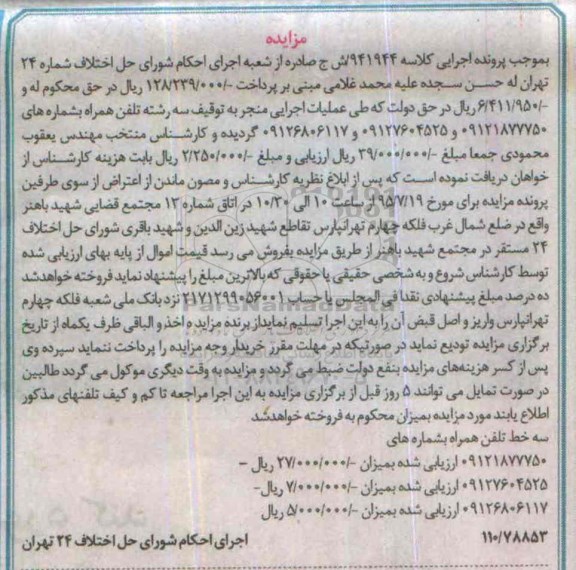 مزایده
بموجب پرونده اجرایی کلاسه ۹۴۱۹۴۴/ش ج صادره از شعبه اجرای احکام شورای حل اختلاف شماره ۲۴
تهران له حسن سجده علیه محمد غلامی مبنی بر پرداخت -/۱۲۸/۲۳۹/۰۰۰ ریال در حق محکوم له و
-/۶/۴۱۱/۹۵۰ ریال در حق دولت که طی عملیات اجرایی منجر به توقیف سه رشته تلفن همراه بشماره های
۰۹۱۲۱۸۷۷۷۵۰ و ۰۹۱۲۷۶۰۴۵۲۵ و ۰۹۱۲۶۸۰۶۱۱۷ گردیده و کارشناس منتخب مهندس یعقوب
محمودی جمعا مبلغ -/۳۹/۰۰۰/۰۰۰ ریال ارزیابی و مبلغ -/۲/۲۵۰/۰۰۰ ریال بابت هزینه کارشناس از
خواهان دریافت نموده است که پس از ابلاغ نظریه کارشناس و مصون ماندن از اعتراض از سوی طرفین
پرونده مزایده برای مورخ ۹۵/۷/۱۹ از ساعت ۱۰ الی ۱۰/۳۰ در اتاق شماره ۱۳ مجتمع قضایی شهید باهنر
واقع در ضلع شمال غرب فلکه چهارم تهرانپارس تقاطع شهید زین الدین و شهید باقری شورای حل اختلاف
۲۴ مستقر در مجتمع شهید باهنر از طریق مزایده بفروش می رسد قیمت اموال از پایه بهای ارزیابی شده
توسط کارشناس شروع و به شخصی حقیقی یا حقوقی که بالاترین مبلغ را پیشنهاد نماید فروخته خواهدشد
ده درصد مبلغ پیشنهادی نقدا فی المجلس یا حساب ۲۱۷۱۲۹۹۰۵۶۰۰۱ نزد بانک ملی شعبه فلکه چهارم
تهرانپارس واریز و اصل قبض آن را به این اجرا تسلیم نماید از برنده مزایده اخذ و الباقی ظرف یکماه از تاریخ
برگزاری مزایده تودیع نماید در صورتیکه در مهلت مقرر خریدار وجه مزایده را پرداخت ننماید سپرده وی
پس از کسر هزینه‌های مزایده بنفع دولت ضبط می گردد و مزایده به وقت دیگری موکول می گردد طالبین
در صورت تمایل می توانند ۵ روز قبل از برگزاری مزایده به این اجرا مراجعه تا کم و کیف تلفنهای مذکور
اطلاع یابند مورد مزایده بمیزان محکوم به فروخته خواهدشد
سه خط تلفن همراه بشماره های
۰۹۱۲۱۸۷۷۷۵۰ ارزیابی شده بمیزان -/۲۷/۰۰۰/۰۰۰ ریال -
۰۹۱۲۷۶۰۴۵۲۵ ارزیابی شده بمیزان -/۷/۰۰۰/۰۰۰ ریال-
۰۹۱۲۶۸۰۶۱۱۷ ارزیابی شده بمیزان -/۵/۰۰۰/۰۰۰ ریال
۱۱۰/۷۸۸۵۳ اجرای احکام شورای حل اختلاف ۲۴ تهران
ParsNamadData